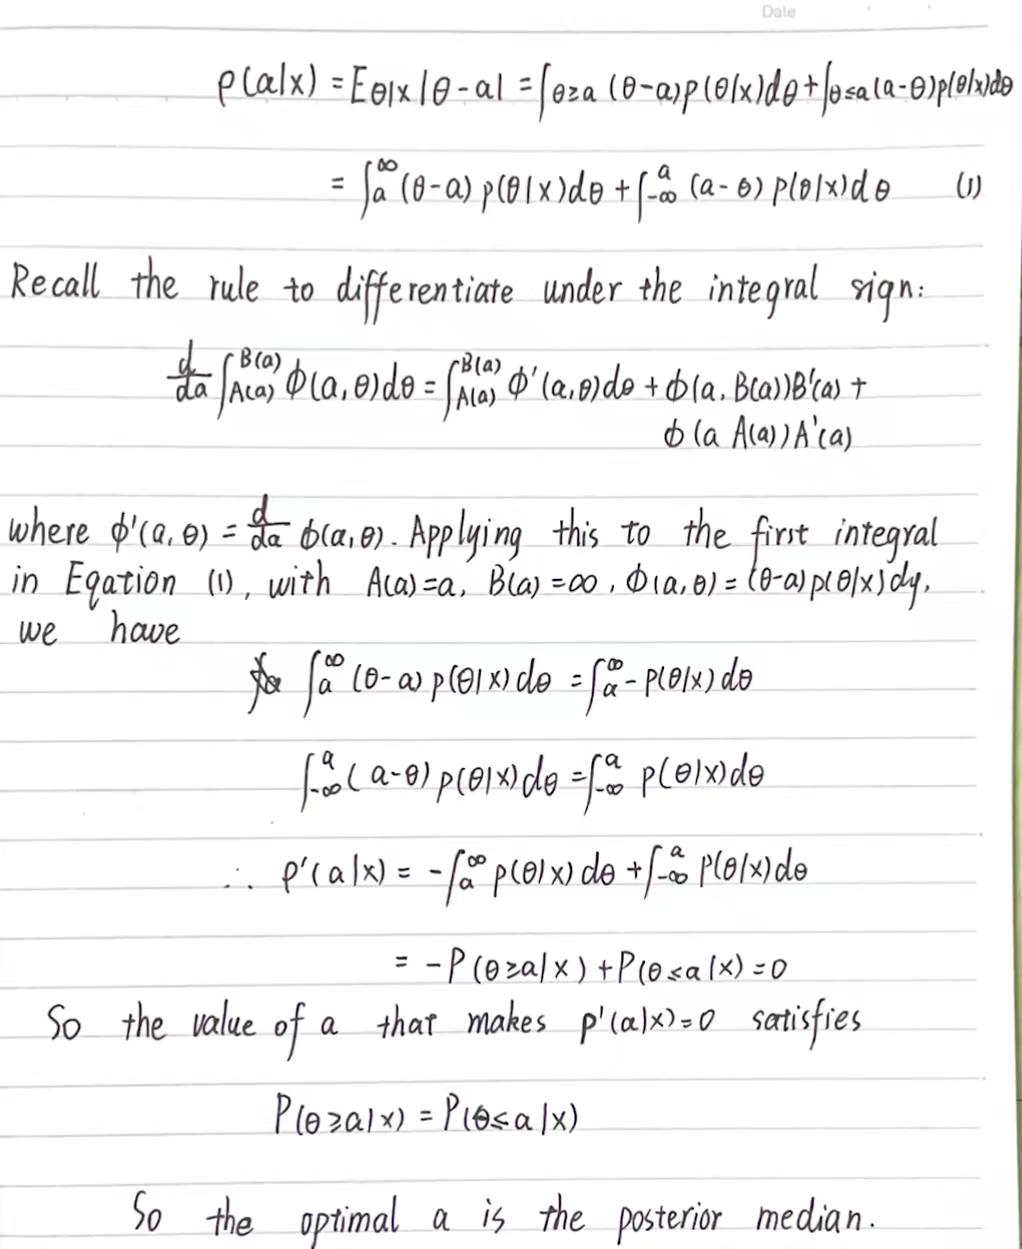 Date
ρ(a|x) = E_{θ|x} |θ-a| = ∫_{θ≥a} (θ-a)p(θ|x)dθ + ∫_{θ≤a} (a-θ)p(θ|x)dθ
= ∫_a^∞ (θ-a) p(θ|x)dθ + ∫_{-∞}^a (a-θ) p(θ|x)dθ (1)
Recall the rule to differentiate under the integral sign:
d/da ∫_{A(a)}^{B(a)} ϕ(a,θ)dθ = ∫_{A(a)}^{B(a)} ϕ'(a,θ)dθ + ϕ(a,B(a))B'(a) +
ϕ(a A(a))A'(a)
where ϕ'(a,θ) = d/da ϕ(a,θ). Applying this to the first integral
in Eqation (1), with A(a)=a, B(a)=∞, ϕ(a,θ)=(θ-a)p(θ|x)dy,
we have
∫_a^∞ (θ-a) p(θ|x)dθ = ∫_a^∞ - p(θ|x)dθ
∫_{-∞}^a (a-θ) p(θ|x)dθ = ∫_{-∞}^a p(θ|x)dθ
∴ ρ'(a|x) = -∫_a^∞ p(θ|x)dθ + ∫_{-∞}^a P(θ|x)dθ
= -P(θ≥a|x) + P(θ≤a|x) = 0
So the value of a that makes p'(a|x)=0 satisfies
P(θ≥a|x) = P(θ≤a|x)
So the optimal a is the posterior median.